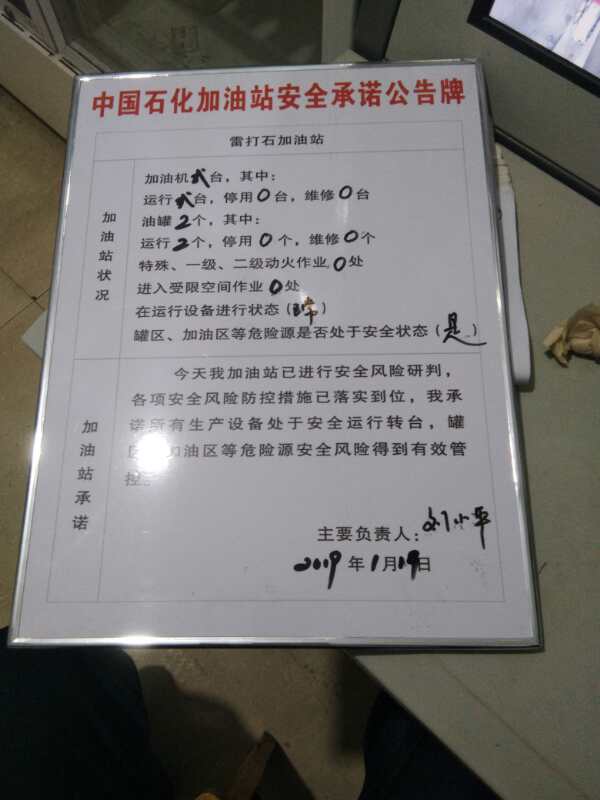 中国石化加油站安全承诺公告牌
雷打石加油站
加油站状况
加油机 台，其中：
运行 台，停用0台，维修0台
油罐2个，其中：
运行2个，停用0个，维修0个
特殊、一级、二级动火作业0处
进入受限空间作业0处
在运行设备进行状态（正常）
罐区、加油区等危险源是否处于安全状态（是）
加油站承诺
今天我加油站已进行安全风险研判，
各项安全风险防控措施已落实到位，我承
诺所有生产设备处于安全运行转台，罐
区、加油区等危险源安全风险得到有效管
控。
主要负责人：刘小平
2019年1月19日